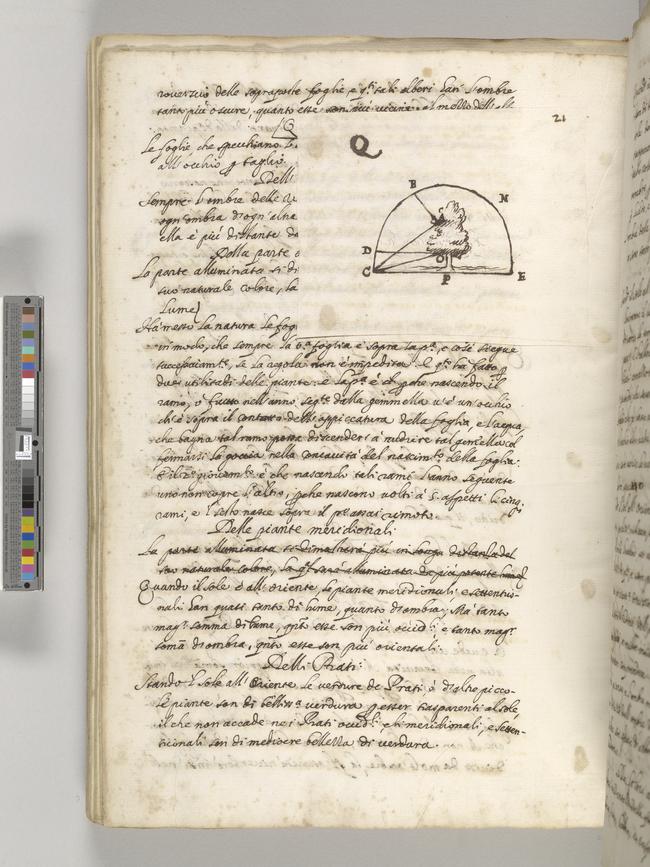 rouerscio delle sopraposte foglie e q.sti tali alberi han l'ombre
tanto più oscure, quanto esse son più uicine al mezzo dell
21
Q
Le foglie che specchiano l
all'occhio p taglio
Dell
Sempre l'ombre delle
ogn'ombra d'ogn'altra
ella è più distante da
Dalla parte
La parte alluminata si di
suo naturale colore, la
lume
B
N
A
D
O
C
P
E
Hà messo la natura le fog
in modo, che sempre la 6.a foglia è sopra la p.a, e così segue
successiuam.te, se la regola non è impedita. E q.sto hà fatto p
due utilità di esse piante. e la p.a è che nascendo il
ramo, o frutto nell'anno seg.te dalla gemmella u'è un'occhio
ch'è sopra il contatto dell'appiccatura della foglia, e l'acqua,
che bagna tal ramo possa discendere à nudrire tal gemella col
fermarsi la goccia nella concauità del nascim.to della foglia:
E il 2.o giouam.to è che nascendo tali rami l'anno seguente
uno non copre l'altro, p che nascono uolti à 5 aspetti li cinq
rami, e 'l sesto nasce sopra il p.o assai rimoto.
Delle piante meridionali
La parte alluminata si dimostrarà più in longa distanza del
suo naturale colore, la q.l sarà alluminata da più potente lume
Quando il sole è all'oriente, le piante meridionali, e settentrio-
nali han quasi tanto di lume, quanto d'ombra; Mà tanto
mag.r somma di lume, q.nto esse son più occid.li, e tanto mag.r
somã d'ombra, q.nto esse son più orientali.
Delli Prati:
Stando il sole all'Oriente le uerdure de Prati, ò d'altre picco-
le piante son di belliss.a uerdura p esser trasparenti al sole,
il che non accade ne i Prati occid.li, e li meridionali, e setten-
trionali son di mediocre bellezza di uerdura.